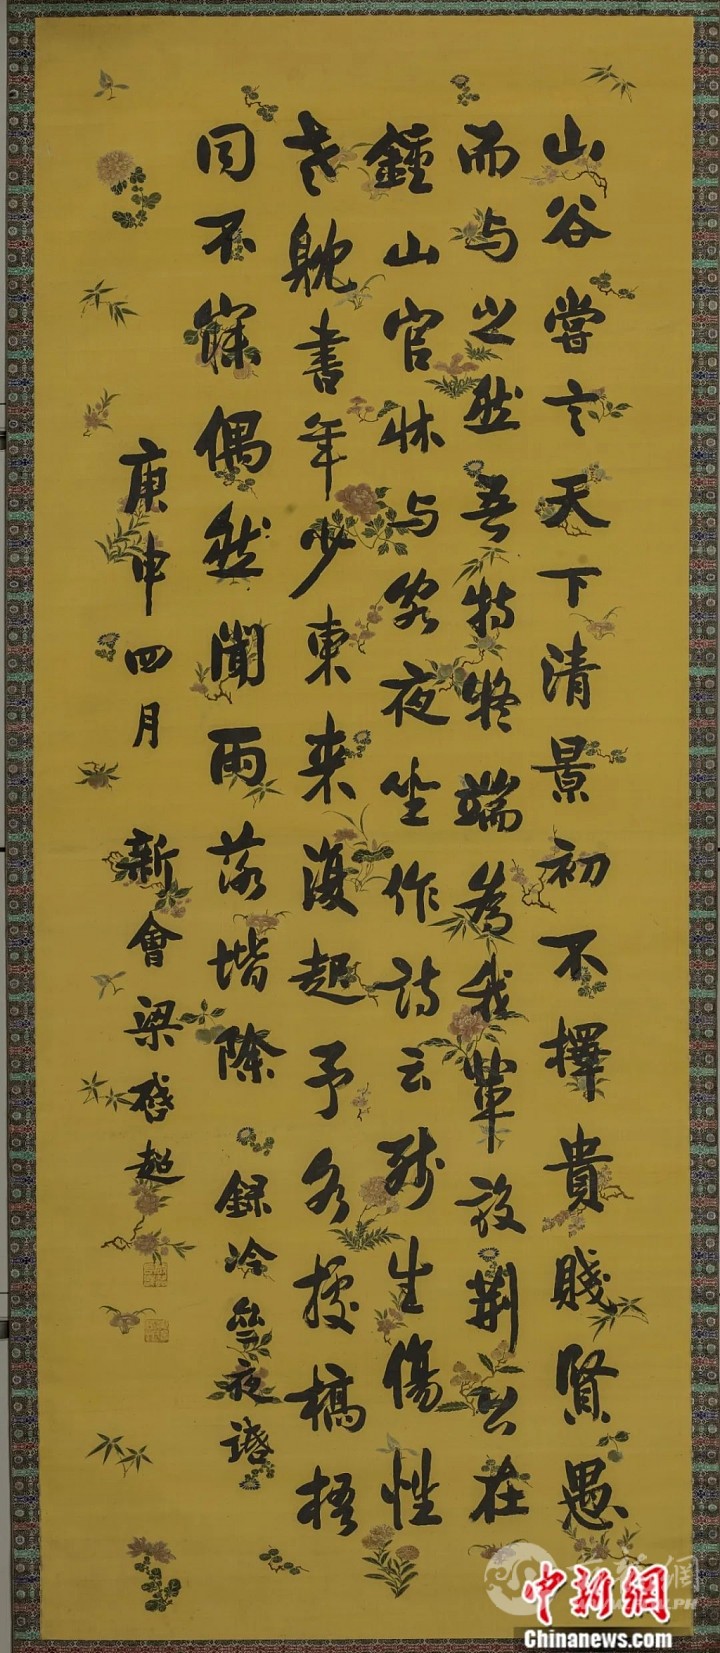 山谷嘗言天下清景初不擇貴賤賢愚
而与之然吾特疑端為我輩設荆公在
鍾山官休与客夜坐作詩云殘生傷性
老耽書年少東来復起予各據槁梧
同不寐偶然聞雨落堦除 錄冷齋夜話
庚申四月 新會梁啓超
中新網
Chinanews.com